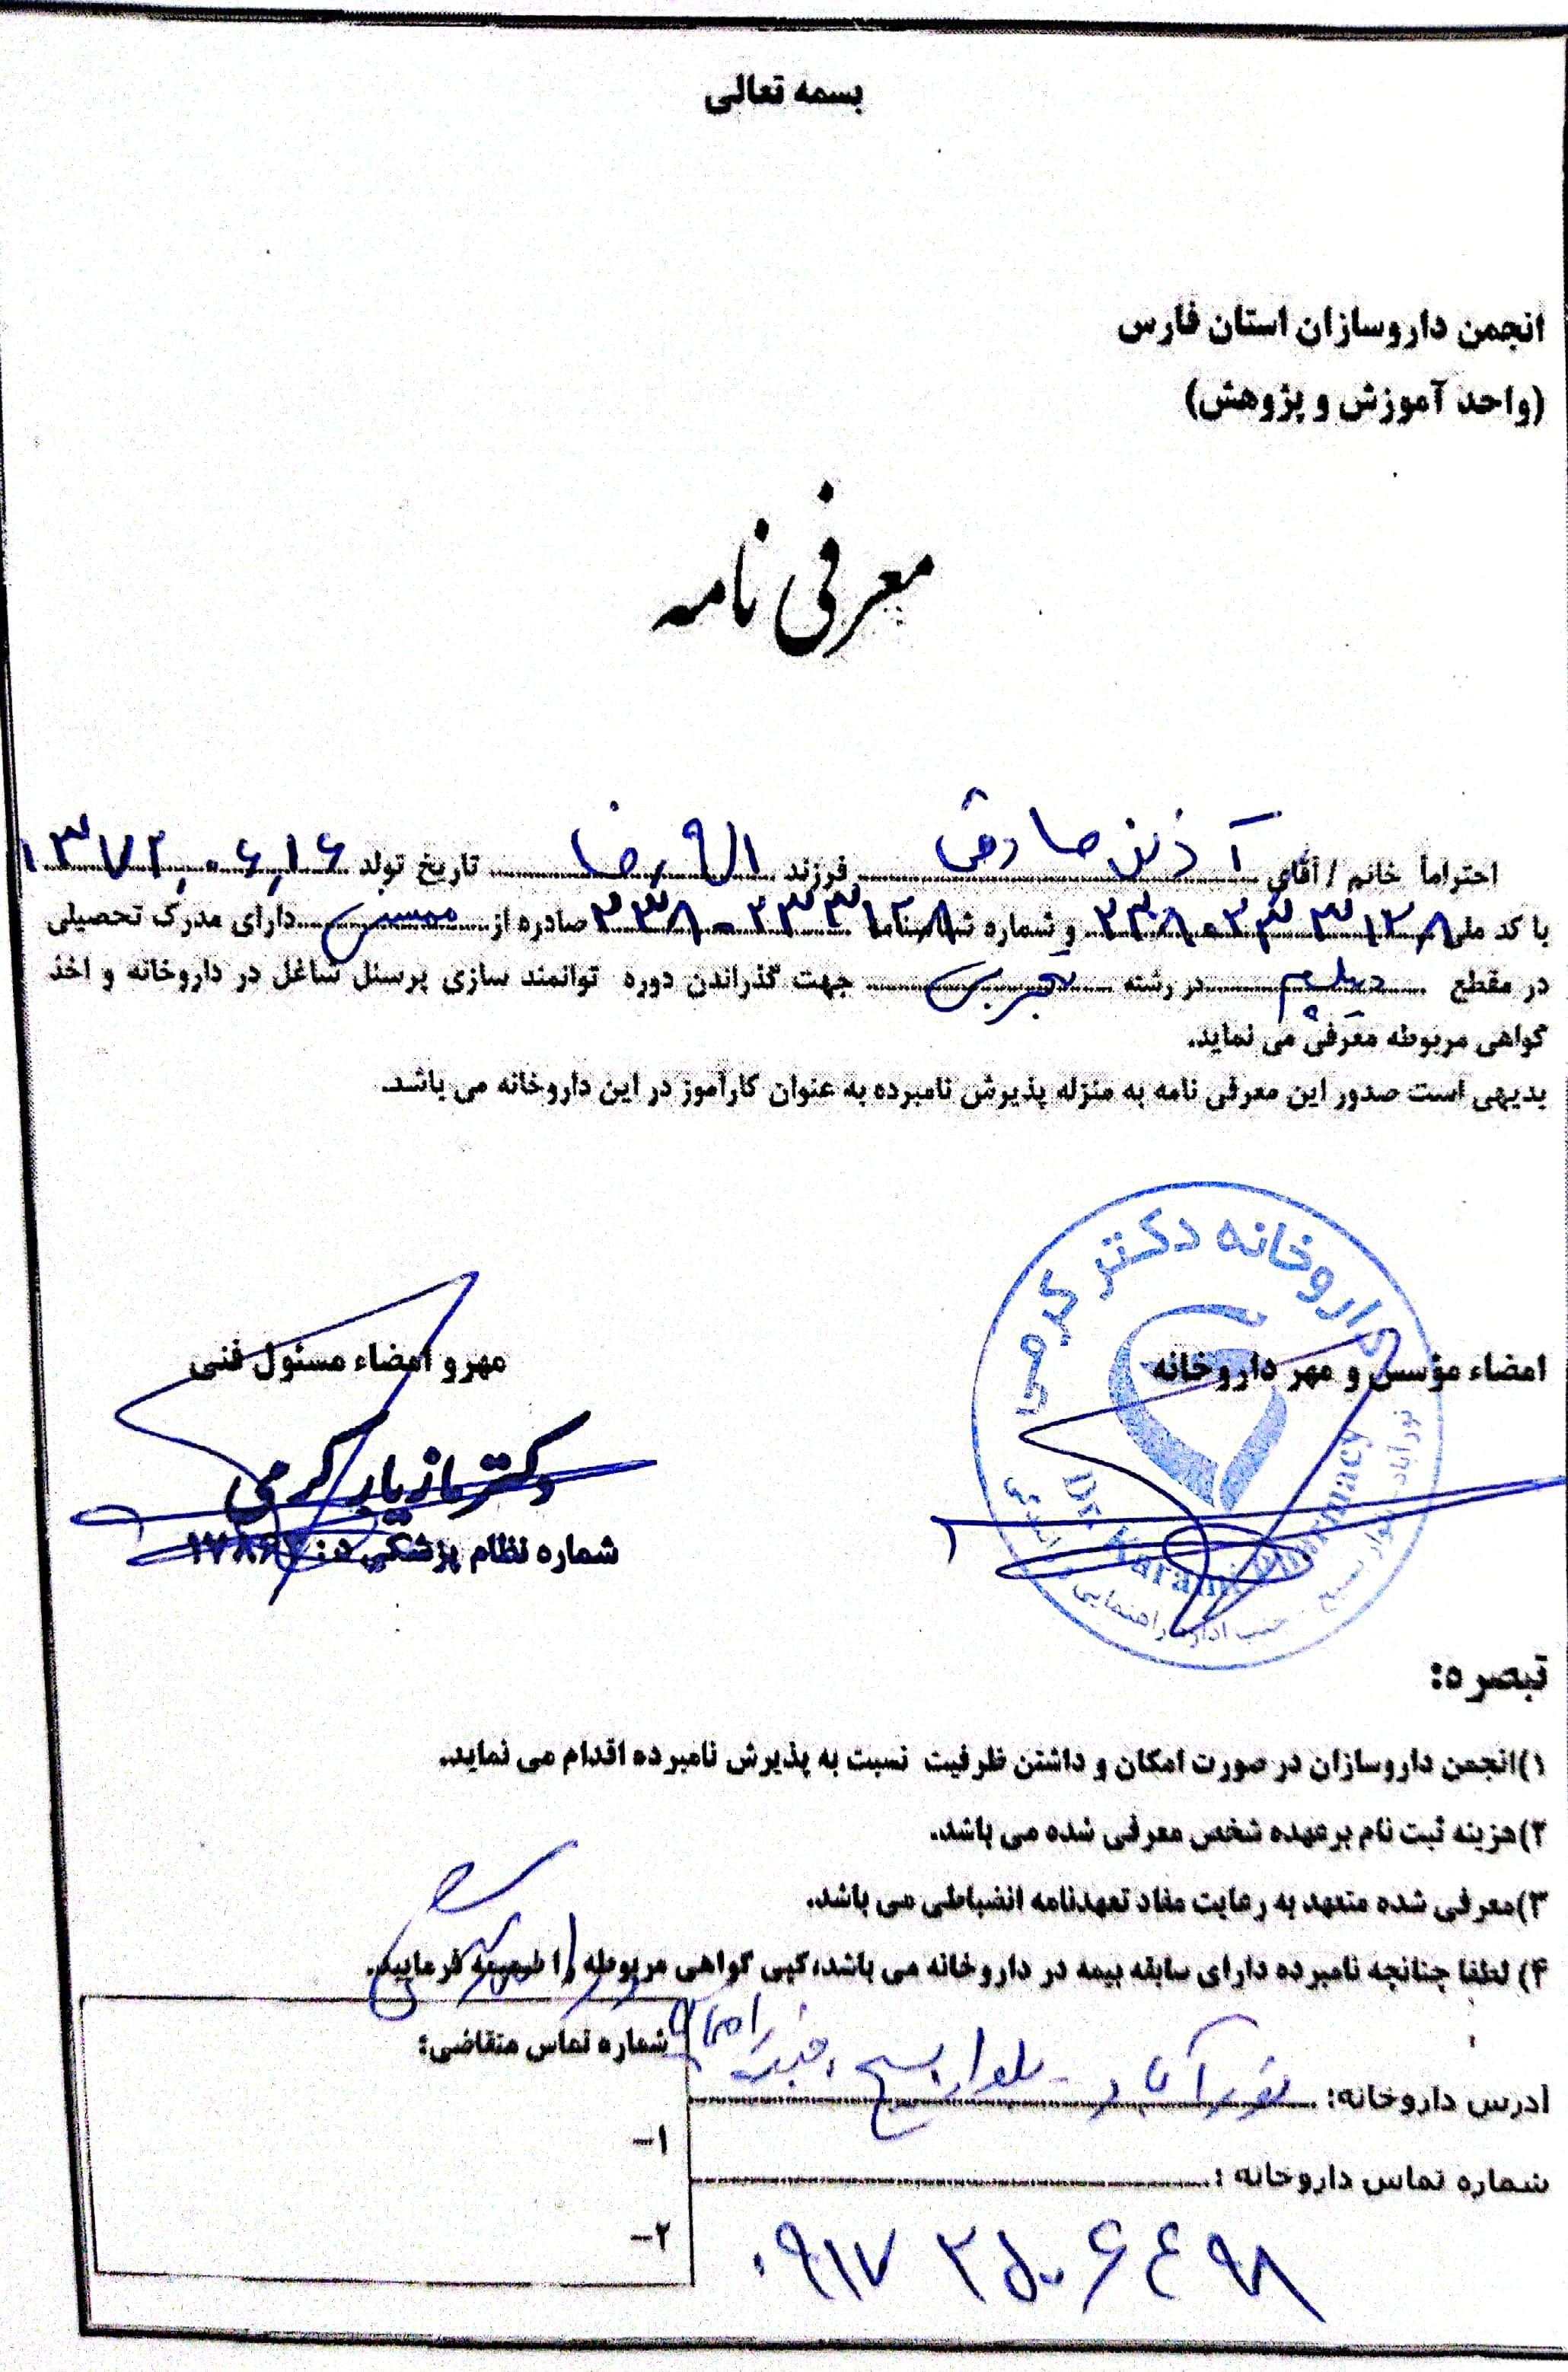 بسمه تعالی
انجمن داروسازان استان فارس
(واحد آموزش و پژوهش)
معرفی نامه
احتراماً خانم / آقای آذین صادقی فرزند الله رضا تاریخ تولد ۱۳۷۲,۰۶,۱۶
با کد ملی ۲۳۸۰۲۳۳۱۲۸ و شماره شناسنامه ۲۳۸۰۲۳۳۱۲۸ صادره از ممسنی دارای مدرک تحصیلی
در مقطع دیپلم در رشته تجربی جهت گذراندن دوره توانمند سازی پرسنل شاغل در داروخانه و اخذ
گواهی مربوطه معرفی می نماید.
بدیهی است صدور این معرفی نامه به منزله پذیرش نامبرده به عنوان کارآموز در این داروخانه می باشد.
داروخانه دکتر کرمی
Dr. Karami Pharmacy
نورآباد - بلوار بسیج - جنب اداره راهنمایی
امضاء مؤسس و مهر داروخانه
مهر و امضاء مسئول فنی
دکتر مازیار کرمی
شماره نظام پزشکی د:
تبصره:
۱)انجمن داروسازان در صورت امکان و داشتن ظرفیت نسبت به پذیرش نامبرده اقدام می نماید.
۲)هزینه ثبت نام برعهده شخص معرفی شده می باشد.
۳)معرفی شده متعهد به رعایت مفاد تعهدنامه انضباطی می باشد.
۴) لطفا چنانچه نامبرده دارای سابقه بیمه در داروخانه می باشد،کپی گواهی مربوطه را ضمیمه فرمایید.
آدرس داروخانه: نورآباد - بلوار بسیج ، جنب
شماره تماس داروخانه :
۰۹۱۷ ۲۵۰۶۴۹۸
شماره تماس متقاضی:
۱-
۲-